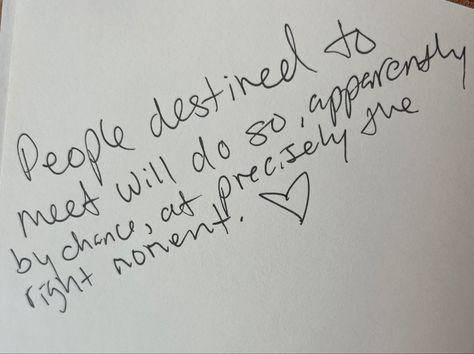 People destined to
meet will do so, apparently
by chance, at precisely the
right moment. ♡